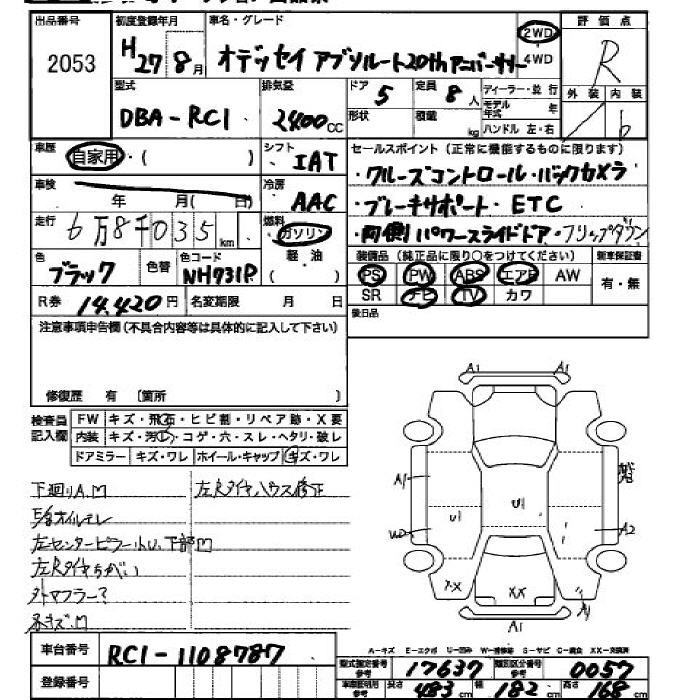 出品番号 初度登録年月 車名・グレード 評価点
2053 H27 8月 オデッセイ アブソルート20thアニバーサリー 2WD 4WD R
外装 内装
型式 排気量 ドア 定員 ディーラー・並行
DBA-RC1 2400cc 5 8人 モデル年式 年
形状 積載 kg ハンドル 左・右 b
車歴 自家用・( ) シフト IAT セールスポイント(正常に機能するものに限ります)
・クルーズコントロール・バックカメラ
車検 年 月( 日) 冷房 AAC ・ブレーキサポート・ETC
走行 6万8千035km 燃料 ガソリン ・両側パワースライドドア・フリップダウン
軽・油 ( )
色 ブラック 色替 色コード NH731P 装備品(純正品に限り○をつけてください) 新車保証書
PS PW ABS エアB AW 有・無
R券 14.420円 名変期限 月 日 SR ナビ TV カワ
注意事項申告欄(不具合内容等は具体的に記入して下さい) 後日品
修復歴 有 [箇所 ]
検査員記入欄 FW キズ・飛石・ヒビ割・リペア跡・X要
内装 キズ・汚れ・コゲ・穴・スレ・ヘタリ・破レ
ドアミラー キズ・ワレ ホイール・キャップ キズ・ワレ
下廻りA.M 左Rタイヤハウス修正
左センターピラー小U、下部M
左Rタイヤちがい
外マフラー?
A1 A1
A1
U1 U1
A2
XX
A1
車台番号 RC1-1108787
登録番号
A-キズ E-エクボ U-凹み W-補修跡 S-サビ C-腐食 XX-交換済
型式指定番号 参考 17637 類別区分番号 参考 0057
車検証明用 参考 長さ 483cm 幅 182cm 高さ 168cm